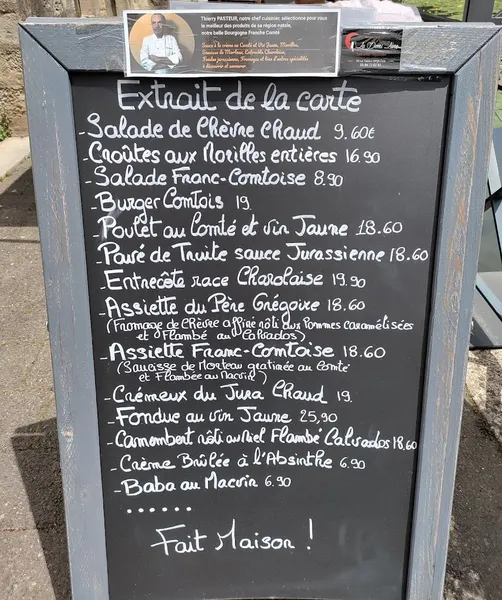 Thierry PASTEUR, notre chef cuisinier, sélectionne pour vous
le meilleur des produits de sa région natale,
notre belle Bourgogne Franche Comté
Extrait de la carte
- Salade de Chèvre Chaud 9.60€
- Croûtes aux Morilles entières 16.90
- Salade Franc-Comtoise 8.90
- Burger Comtois 19
- Poulet au Comté et vin Jaune 18.60
- Pavé de Truite sauce Jurassienne 18.60
- Entrecôte race Charolaise 19.90
- Assiette du Père Grégoire 18.60
(Fromage de Chèvre affiné rôti aux Pommes caramélisées
et Flambé au Calvados)
- Assiette Franc-Comtoise 18.60
(Saucisse de Morteau gratinée au Comté
et Flambée au Macvin)
- Crémeux du Jura Chaud 19.
- Fondue au vin Jaune 25,90
- Camembert rôti au Miel Flambé Calvados 18.60
- Crème Brûlée à l'Absinthe 6.90
- Baba au Macvin 6.90
......
Fait Maison !